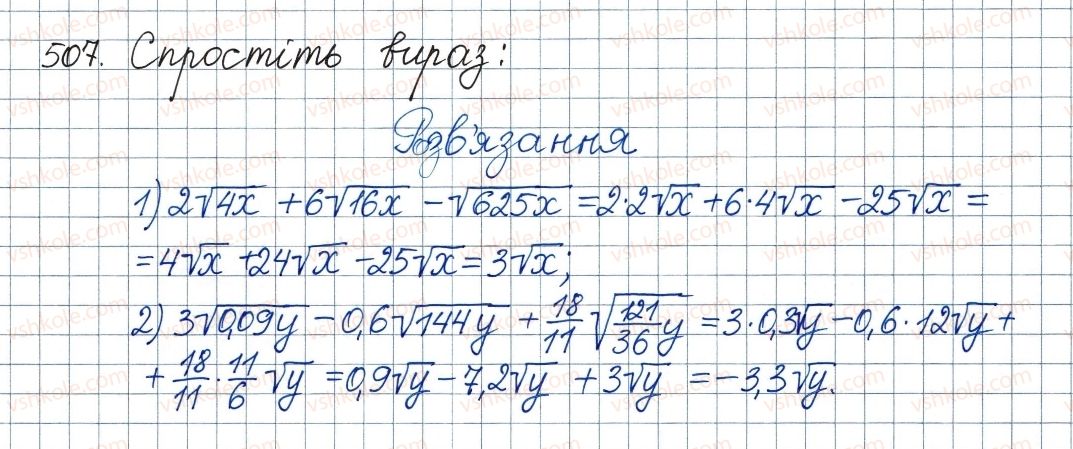 507. Спростіть вираз:
Розв'язання
1) 2√4x + 6√16x - √625x = 2·2√x + 6·4√x - 25√x =
= 4√x + 24√x - 25√x = 3√x;
2) 3√0,09y - 0,6√144y + 18/11 √121/36 y = 3·0,3√y - 0,6·12√y +
+ 18/11 · 11/6 √y = 0,9√y - 7,2√y + 3√y = -3,3√y.